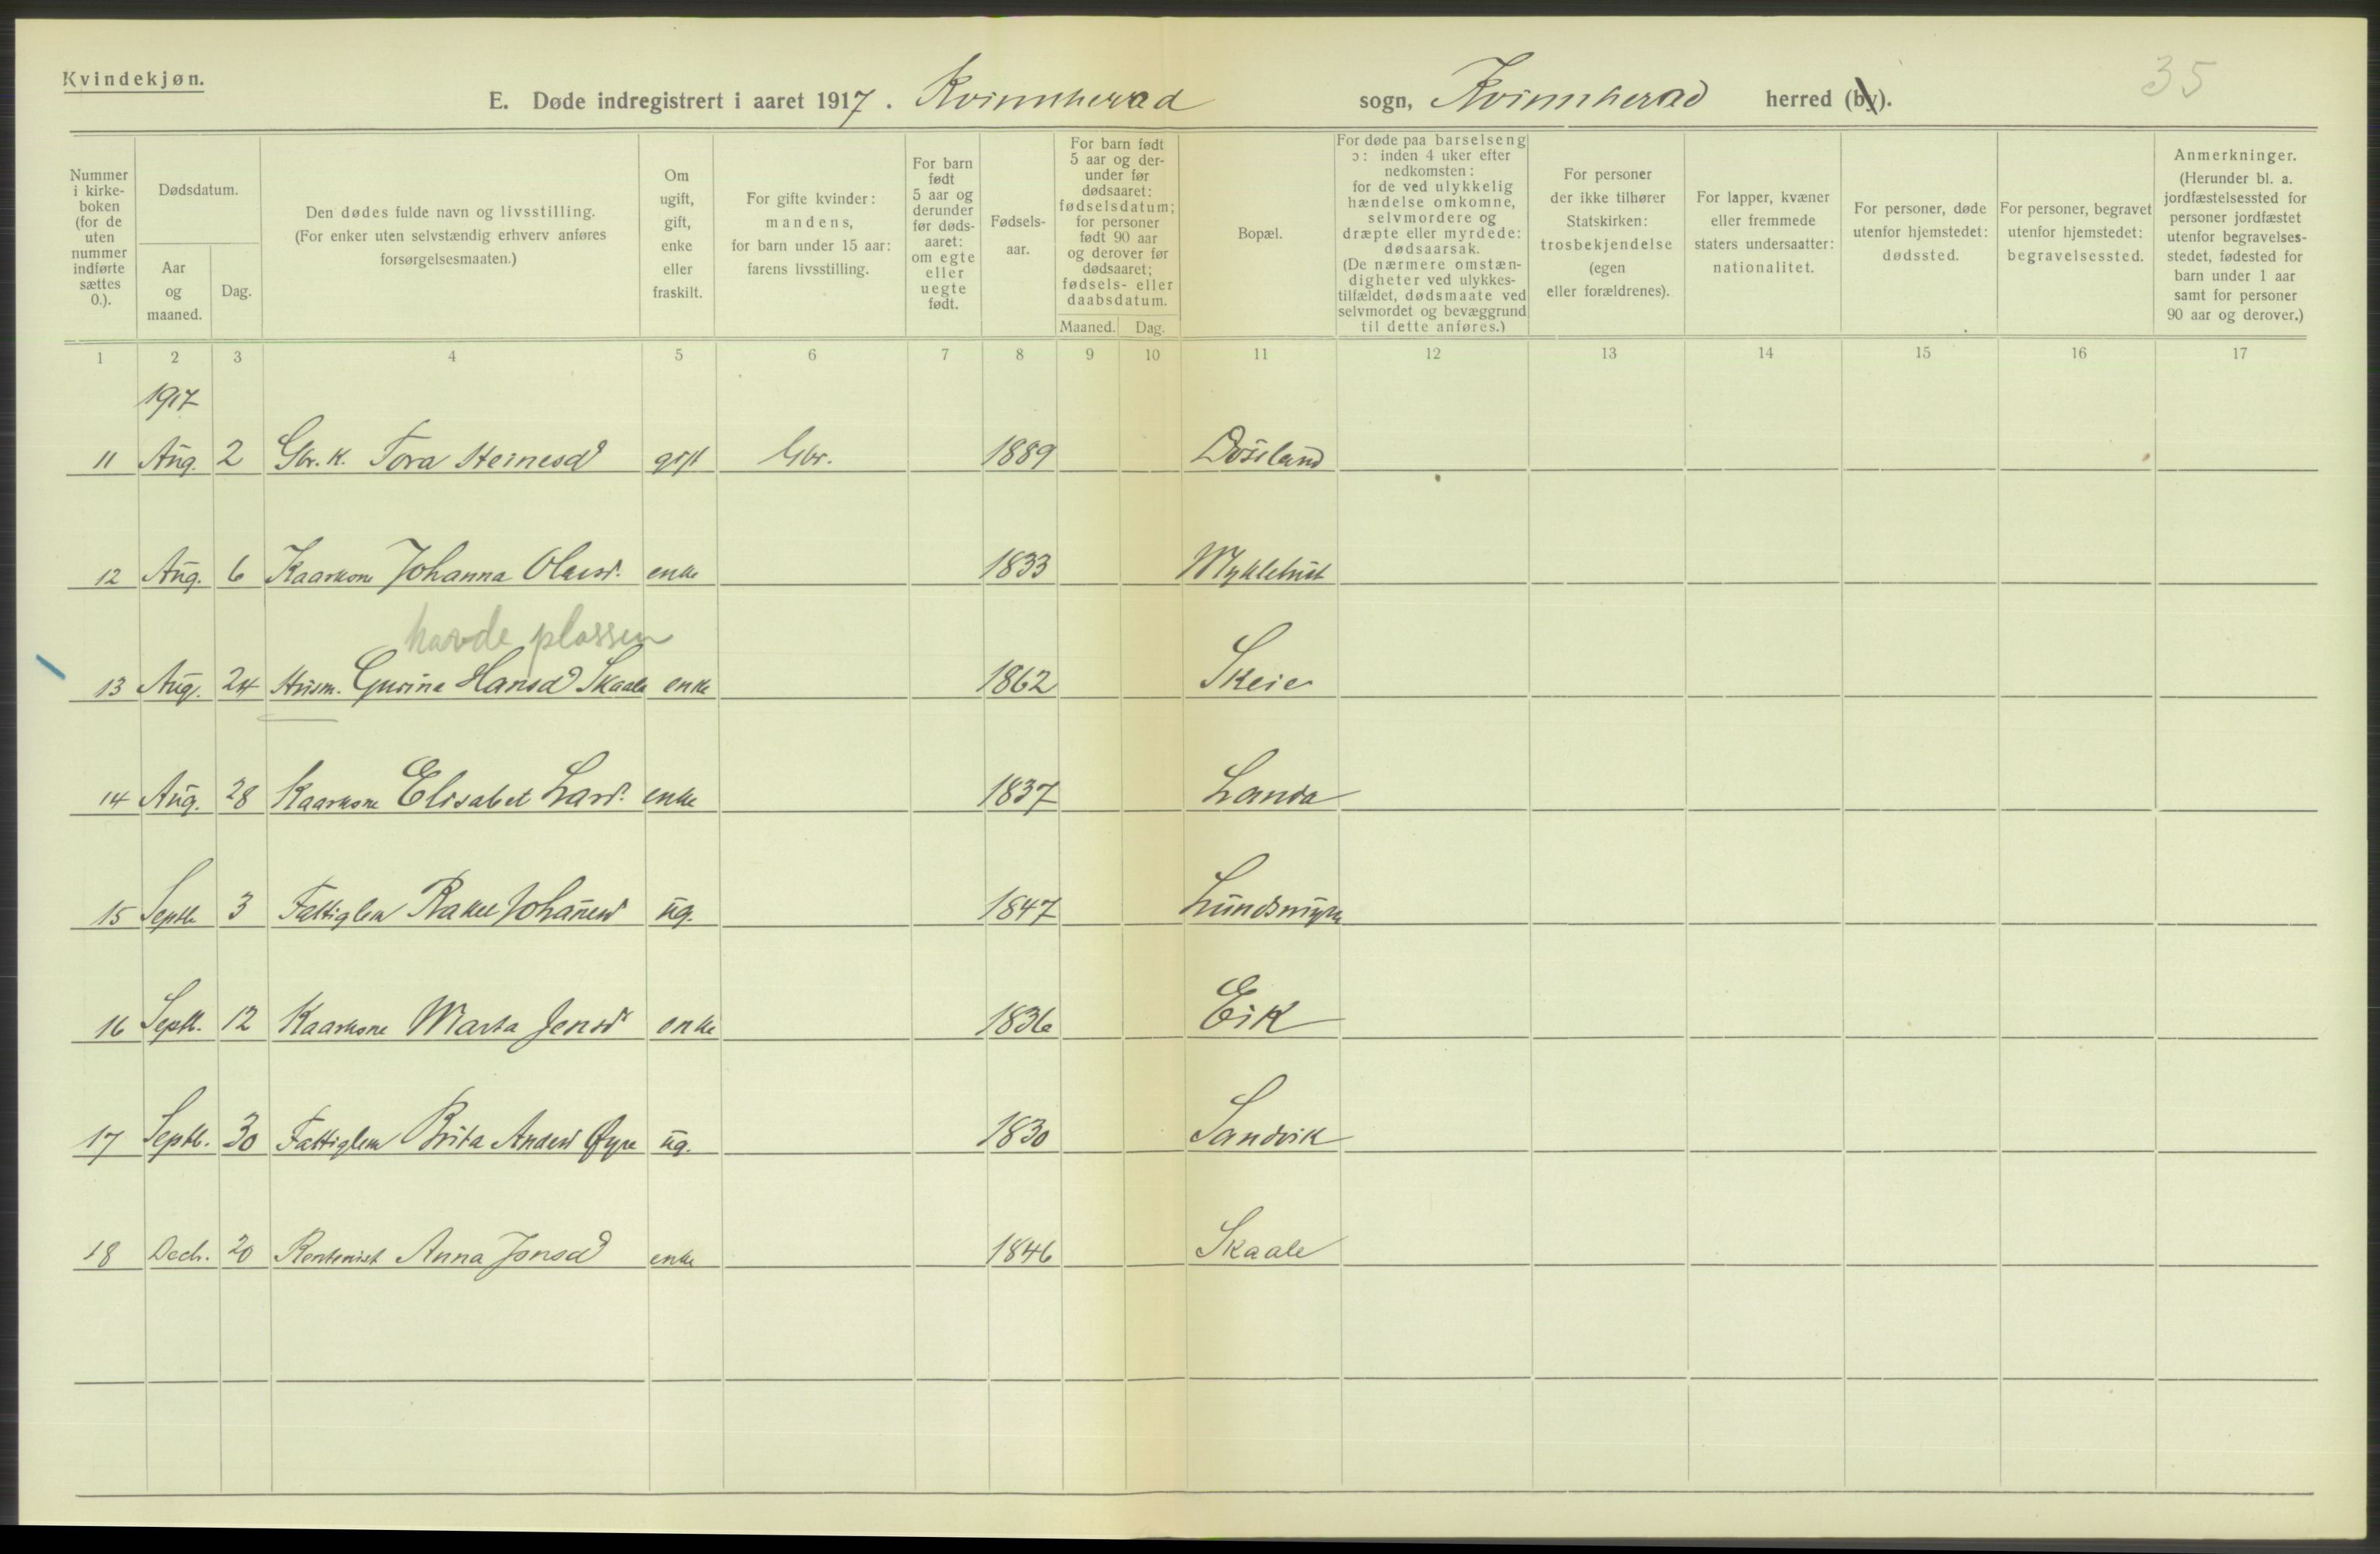 Kvindekjøn.
35
E. Døde indregistrert i aaret 1917. Kvinnherad sogn, Kvinnherad herred (by).
Nummer i kirke-boken (for de uten nummer indførte sættes 0.).
Dødsdatum.
Aar og maaned.
Dag.
Den dødes fulde navn og livsstilling. (For enker uten selvstændig erhverv anføres forsørgelsesmaaten.)
Om ugift, gift, enke eller fraskilt.
For gifte kvinder: mandens, for barn under 15 aar: farens livsstilling.
For barn født 5 aar og derunder før døds-aaret: om egte eller uegte født.
Fødsels-aar.
For barn født 5 aar og der-under før dødsaaret: fødselsdatum; for personer født 90 aar og derover før dødsaaret; fødsels- eller daabsdatum.
Maaned.
Dag.
Bopæl.
For døde paa barselseng ɔ: inden 4 uker efter nedkomsten: for de ved ulykkelig hændelse omkomne, selvmordere og dræpte eller myrdede: dødsaarsak. (De nærmere omstæn-digheter ved ulykkes-tilfældet, dødsmaate ved selvmordet og bevæggrund til dette anføres.)
For personer der ikke tilhører Statskirken: trosbekjendelse (egen eller forældrenes).
For lapper, kvæner eller fremmede staters undersaatter: nationalitet.
For personer, døde utenfor hjemstedet: dødssted.
For personer, begravet utenfor hjemstedet: begravelsessted.
Anmerkninger. (Herunder bl. a. jordfæstelsessted for personer jordfæstet utenfor begravelses-stedet, fødested for barn under 1 aar samt for personer 90 aar og derover.)
1 2 3 4 5 6 7 8 9 10 11 12 13 14 15 16 17
1917
11 Aug. 2 Gbr. k. Tora Steinesd gift Gbr. 1889
12 Aug. 6 Kaarkone Johanna Olausd. enke 1833 Myklebust
havde plassen
13 Aug. 24 Husm. Gurina Hansd Skaale enke 1862 Skeie
14 Aug. 28 Kaarkone Elisabet Larsd. enke 1837 Landa
15 Septb 3 Fattiglem Rakel Johannesd ug. 1847 Lundsmyra
16 Septb. 12 Kaarkone Marta Jensd enke 1836 Eik
17 Septb. 30 Fattiglem Brita Andersd Øyre ug. 1830 Sandvik
18 Decb. 20 Rentenist Anna Jonsd enke 1846 Skaale